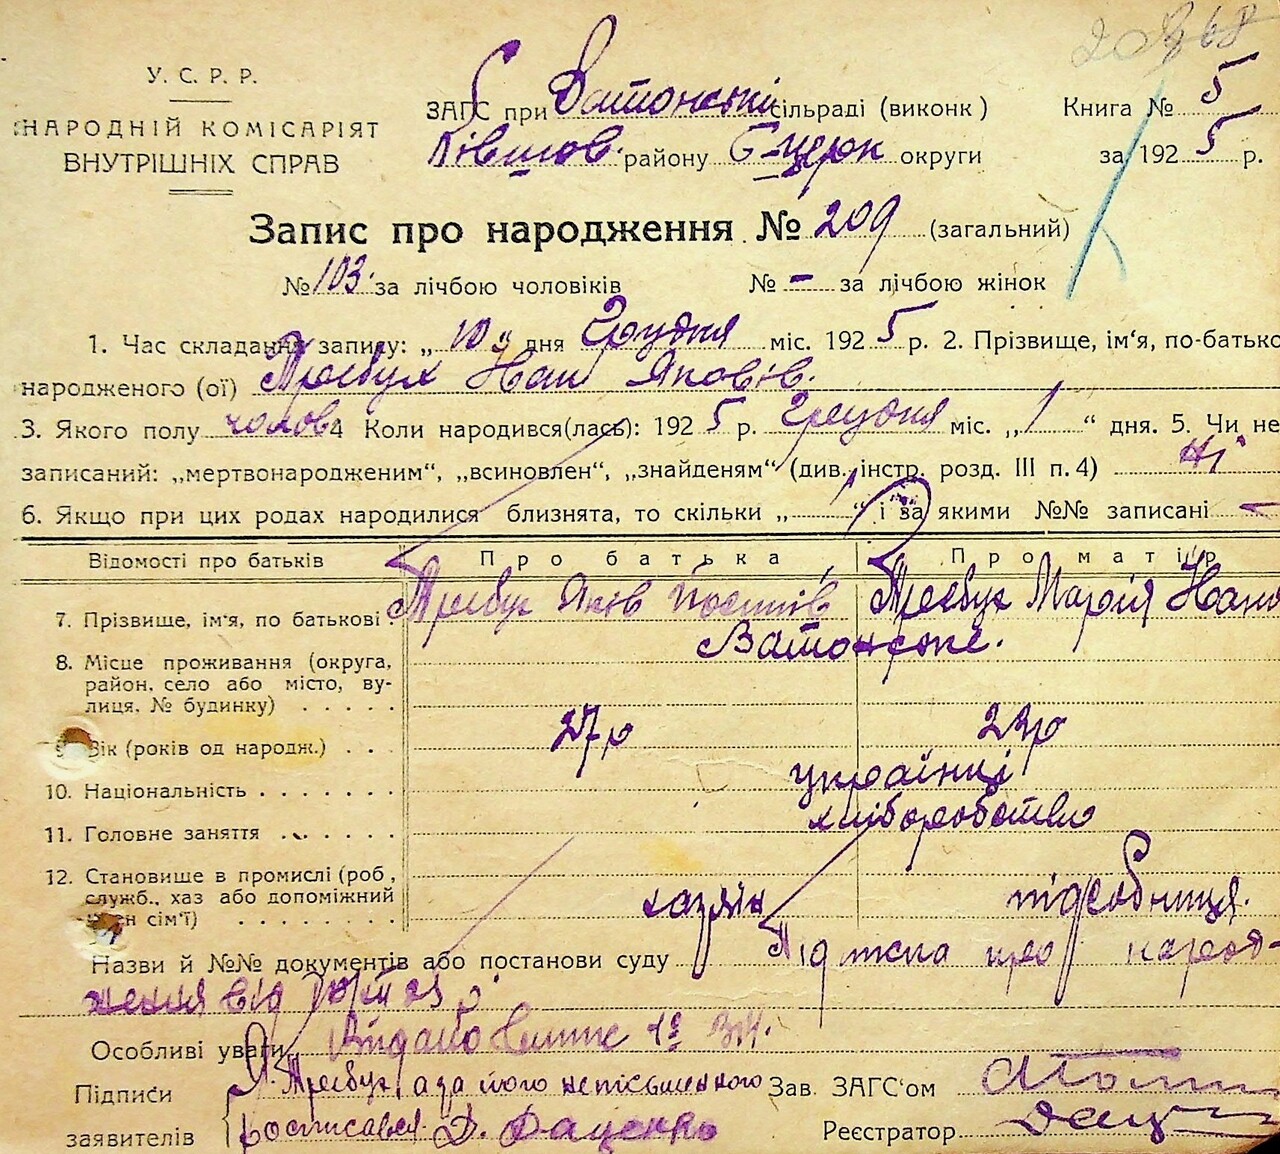 У. С. Р. Р.
НАРОДНІЙ КОМІСАРІЯТ
ВНУТРІШНІХ СПРАВ
ЗАГС при сільраді (виконк)
району Б-церк округи
Книга № 5
за 1925 р.
Запис про народження № 209 (загальний)
№ 103 за лічбою чоловіків № - за лічбою жінок
1. Час складання запису: „10" дня Грудня міс. 1925 р. 2. Прізвище, ім'я, по-батько
народженого (ої) Требух Іван Яковів.
3. Якого полу чолов 4 Коли народився(лась): 1925 р. Грудня міс. „1" дня. 5. Чи не
записаний: „мертвонародженим", „всиновлен", „знайденям" (див. інстр. розд. III п. 4) Ні
6. Якщо при цих родах народилися близнята, то скільки „ " і за якими №№ записані -
Відомості про батьків Про батька Про матір
7. Прізвище, ім'я, по батькові Требух Яків Требух Марія Івано
8. Місце проживання (округа,
район, село або місто, ву-
лиця, № будинку)
9. Вік (років од народж.) 27 р 23 р
10. Національність українці
11. Головне заняття хліборобство
12. Становище в промислі (роб.,
служб., хаз або допоміжний
член сім'ї) хазяїн підсобниця.
Назви й №№ документів або постанови суду народ-
ження від
Особливі уваги Видано
Підписи Я. Требух а за його неписьменного Зав. ЗАГС'ом
заявителів росписався Д. Даценко Реєстратор